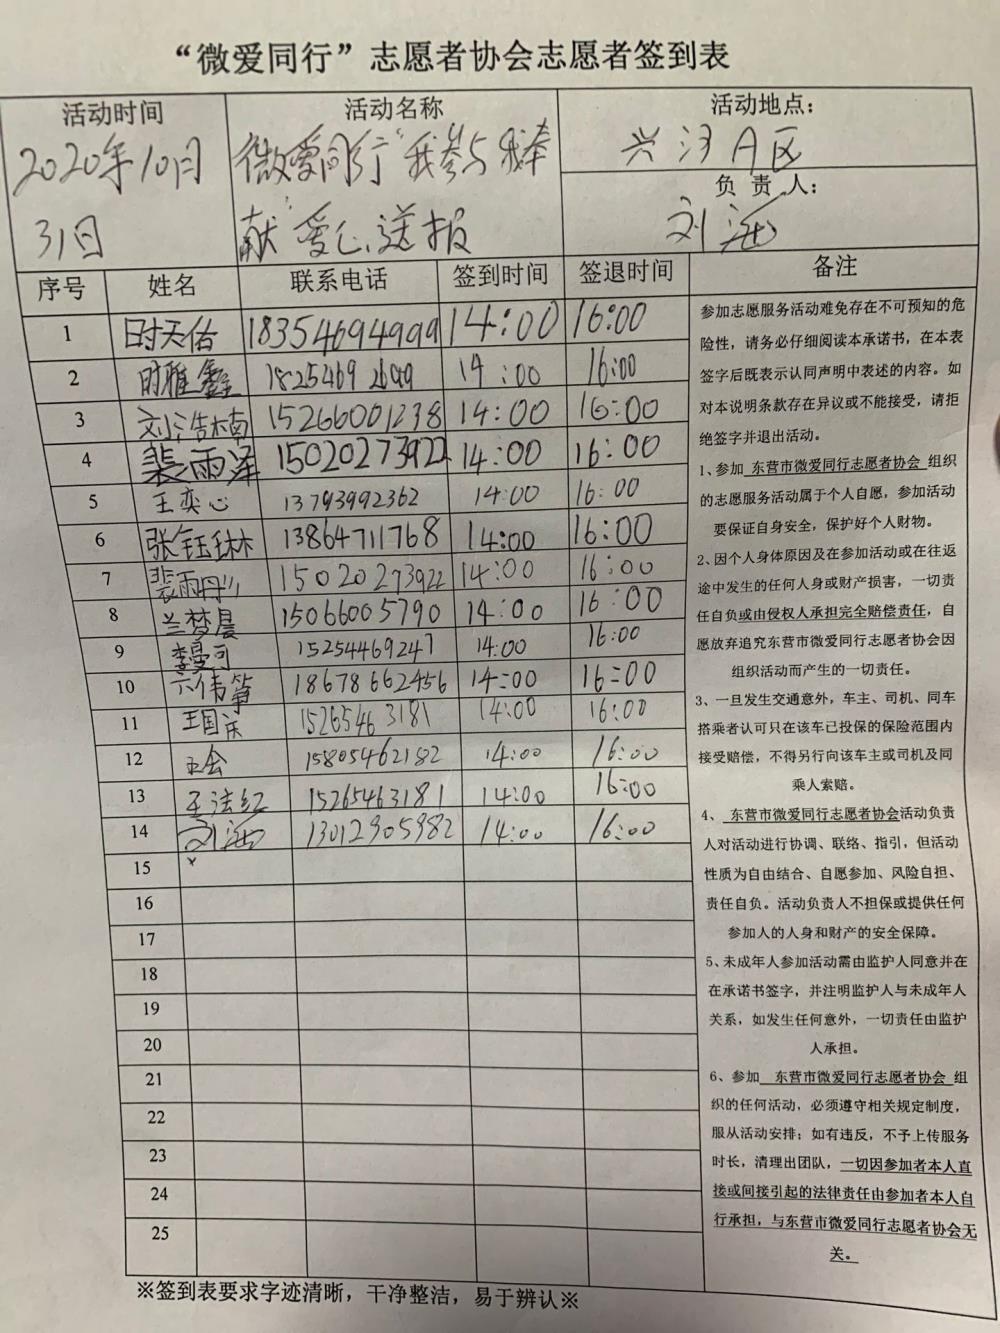 “微爱同行”志愿者协会志愿者签到表
活动时间 活动名称 活动地点：
2020年10月 微爱同行“我参与我奉 兴河A区
31日 献”爱心送报 负 责 人：
刘海
序号 姓名 联系电话 签到时间 签退时间 备注
1 时天佑 18354694999 14:00 16:00
2 时雅鑫 18254692699 14:00 16:00
3 刘浩楠 15266001238 14:00 16:00
4 裴雨泽 15020273922 14:00 16:00
5 王奕心 13793992362 14:00 16:00
6 张钰琳 13864711768 14:00 16:00
7 裴雨 15020273922 14:00 16:00
8 兰梦晨 15066005790 14:00 16:00
9 李曼可 15254469247 14:00 16:00
10 18678662456 14:00 16:00
11 王国庆 15265463181 14:00 16:00
12 15805462182 14:00 16:00
13 王法红 15265463181 14:00 16:00
14 刘海 13012905982 14:00 16:00
15
16
17
18
19
20
21
22
23
24
25
参加志愿服务活动难免存在不可预知的危
险性，请务必仔细阅读本承诺书，在本表
签字后既表示认同声明中表述的内容。如
对本说明条款存在异议或不能接受，请拒
绝签字并退出活动。
1、参加 东营市微爱同行志愿者协会 组织
的志愿服务活动属于个人自愿，参加活动
要保证自身安全，保护好个人财物。
2、因个人身体原因及在参加活动或在往返
途中发生的任何人身或财产损害，一切责
任自负或由侵权人承担完全赔偿责任，自
愿放弃追究东营市微爱同行志愿者协会因
组织活动而产生的一切责任。
3、一旦发生交通意外，车主、司机、同车
搭乘者认可只在该车已投保的保险范围内
接受赔偿，不得另行向该车主或司机及同
乘人索赔。
4、 东营市微爱同行志愿者协会活动负责
人对活动进行协调、联络、指引，但活动
性质为自由结合、自愿参加、风险自担、
责任自负。活动负责人不担保或提供任何
参加人的人身和财产的安全保障。
5、未成年人参加活动需由监护人同意并在
在承诺书签字，并注明监护人与未成年人
关系，如发生任何意外，一切责任由监护
人承担。
6、参加 东营市微爱同行志愿者协会 组
织的任何活动，必须遵守相关规定制度，
服从活动安排；如有违反，不予上传服务
时长，清理出团队，一切因参加者本人直
接或间接引起的法律责任由参加者本人自
行承担，与东营市微爱同行志愿者协会无
关。
※签到表要求字迹清晰，干净整洁，易于辨认※